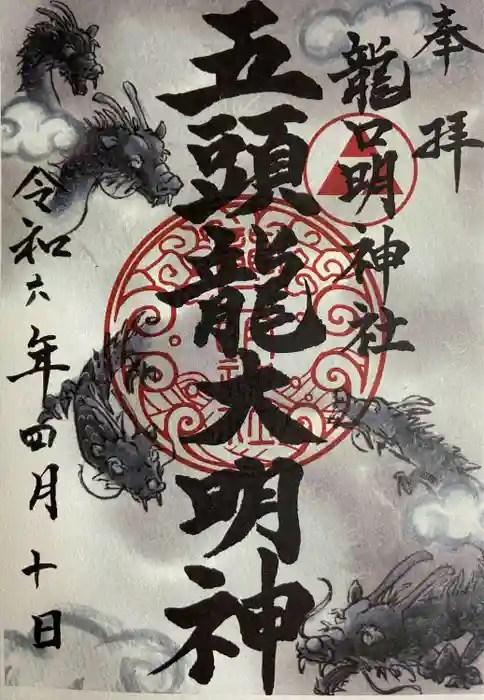 奉拝
龍口明神社
五頭龍大明神
令和六年四月十日